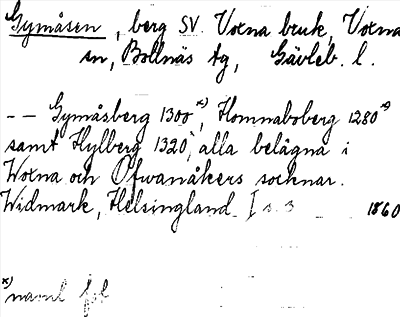 Gymåsen, berg SV. Voxna bruk, Voxna
sn, Bollnäs tg, Gävleb. l.
-- Gymåsberg 1300 x), Homnaboberg 1280 x)
samt Hylberg 1320, alla belägna i
Woxna och Ofwanåkers socknar.
Widmark, Helsingland I s. 3 1860
x) naml fot